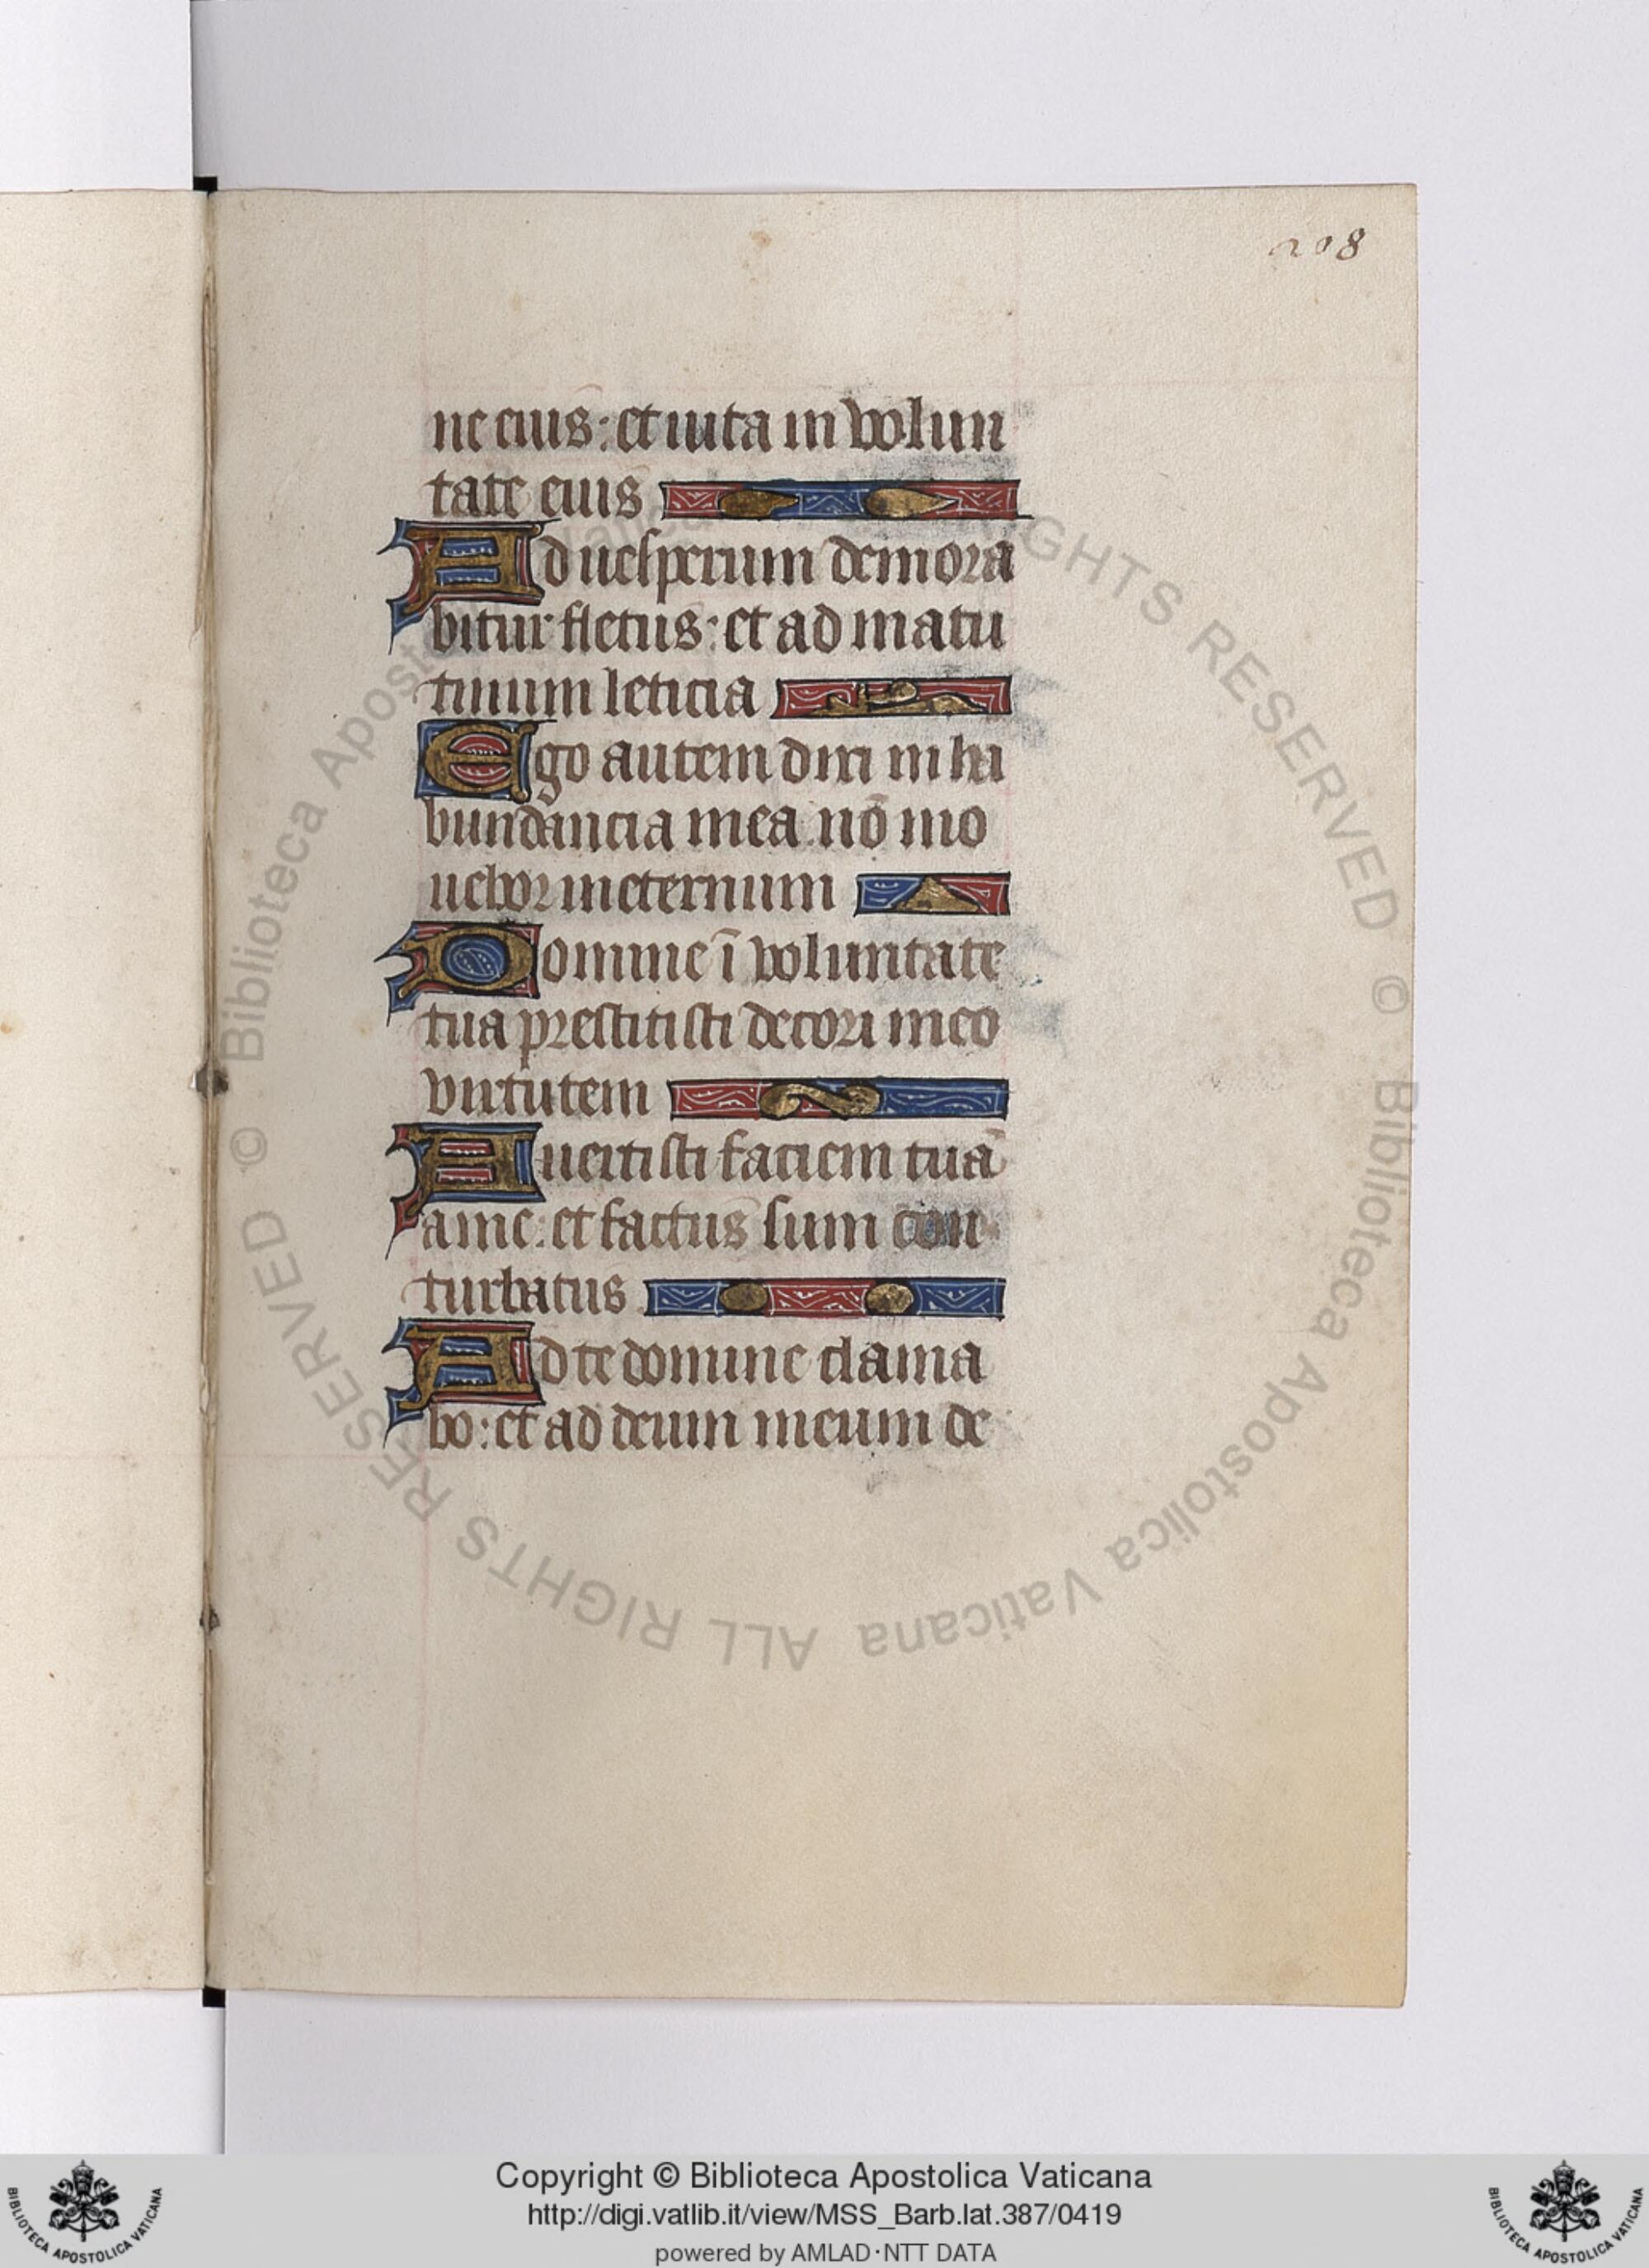 208
ne eius: et uita in volun
tate eius
Ad uesperum demora
bitur fletus: et ad matu
tinum leticia
Ego autem dixi in ha
bundancia mea. nō mo
uebor ineternum
Domine ī voluntate
tua prestitisti decori meo
virtutem
Auertisti faciem tuā
a me: et factus sum con
turbatus
Ad te domine clama
bo: et ad deum meum de
© Biblioteca Apostolica Vaticana ALL RIGHTS RESERVED
© Biblioteca Apostolica Vaticana ALL RIGHTS RESERVED
BIBLIOTECA APOSTOLICA VATICANA
Copyright © Biblioteca Apostolica Vaticana
http://digi.vatlib.it/view/MSS_Barb.lat.387/0419
powered by AMLAD·NTT DATA
BIBLIOTECA APOSTOLICA VATICANA